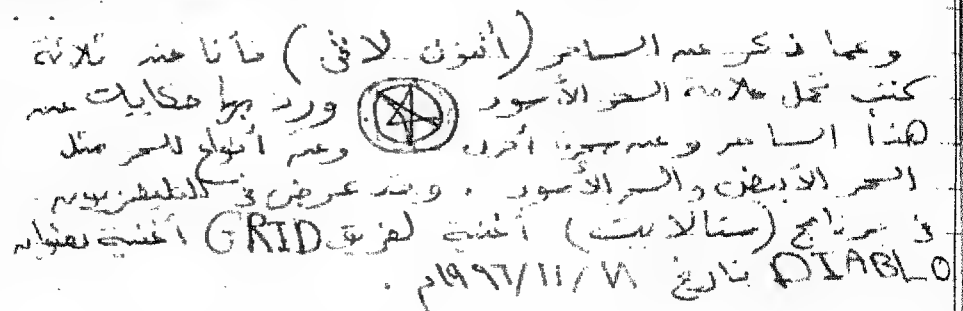 وعما ذكر عن الساحر (أنتون لافى) فأنا عندى ثلاثة
كتب تحمل علامة السحر الأسود ورد بها حكايات عن
هذا الساحر وعن سحرة أخرى وعن أنواع للسحر مثل
السحر الأبيض والسحر الأسود . وقد عرض فى التليفزيون
فى برنامج (ستالايت) أغنية لفريق GRID أغنية بعنوان
DIABLO بتاريخ /١١/١٩٩٦م .